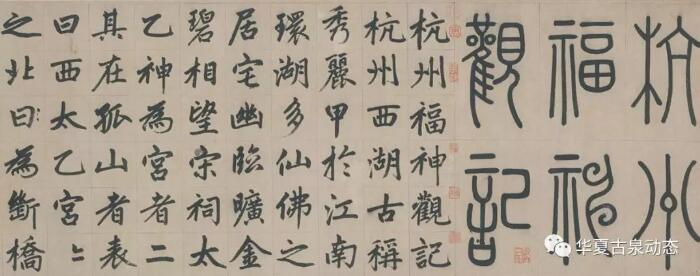 杭州
福神
觀記
杭州福神觀記
杭州西湖古稱
秀麗甲於江南
環湖多仙佛之
居宅幽臨曠金
碧相望宋祠太
乙神為宮者二
其在孤山者表
曰西太乙宮〻
之北曰為斷橋
华夏古泉动态